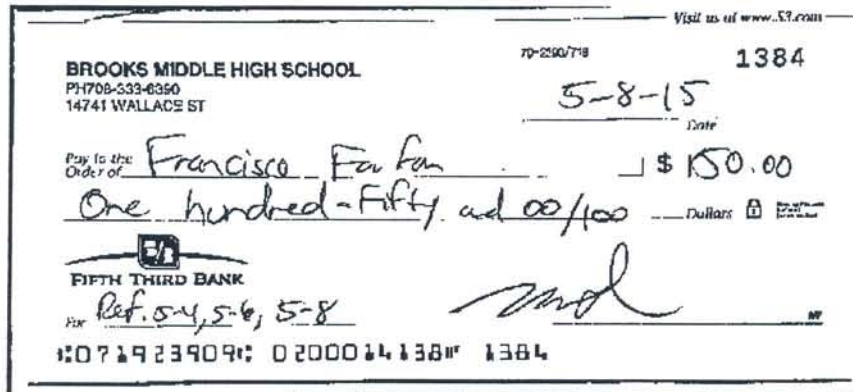 Visit us at www.53.com
70-2390/719
1384
BROOKS MIDDLE HIGH SCHOOL
PH708-333-6390
14741 WALLACE ST
5-8-15
Date
Pay to the
Order of Francisco Farfan $ 150.00
One hundred-Fifty and 00/100 Dollars
5/3
FIFTH THIRD BANK
For Ref. 5-4, 5-6, 5-8
MP
⑆071923909⑆ 0200014138⑈ 1384